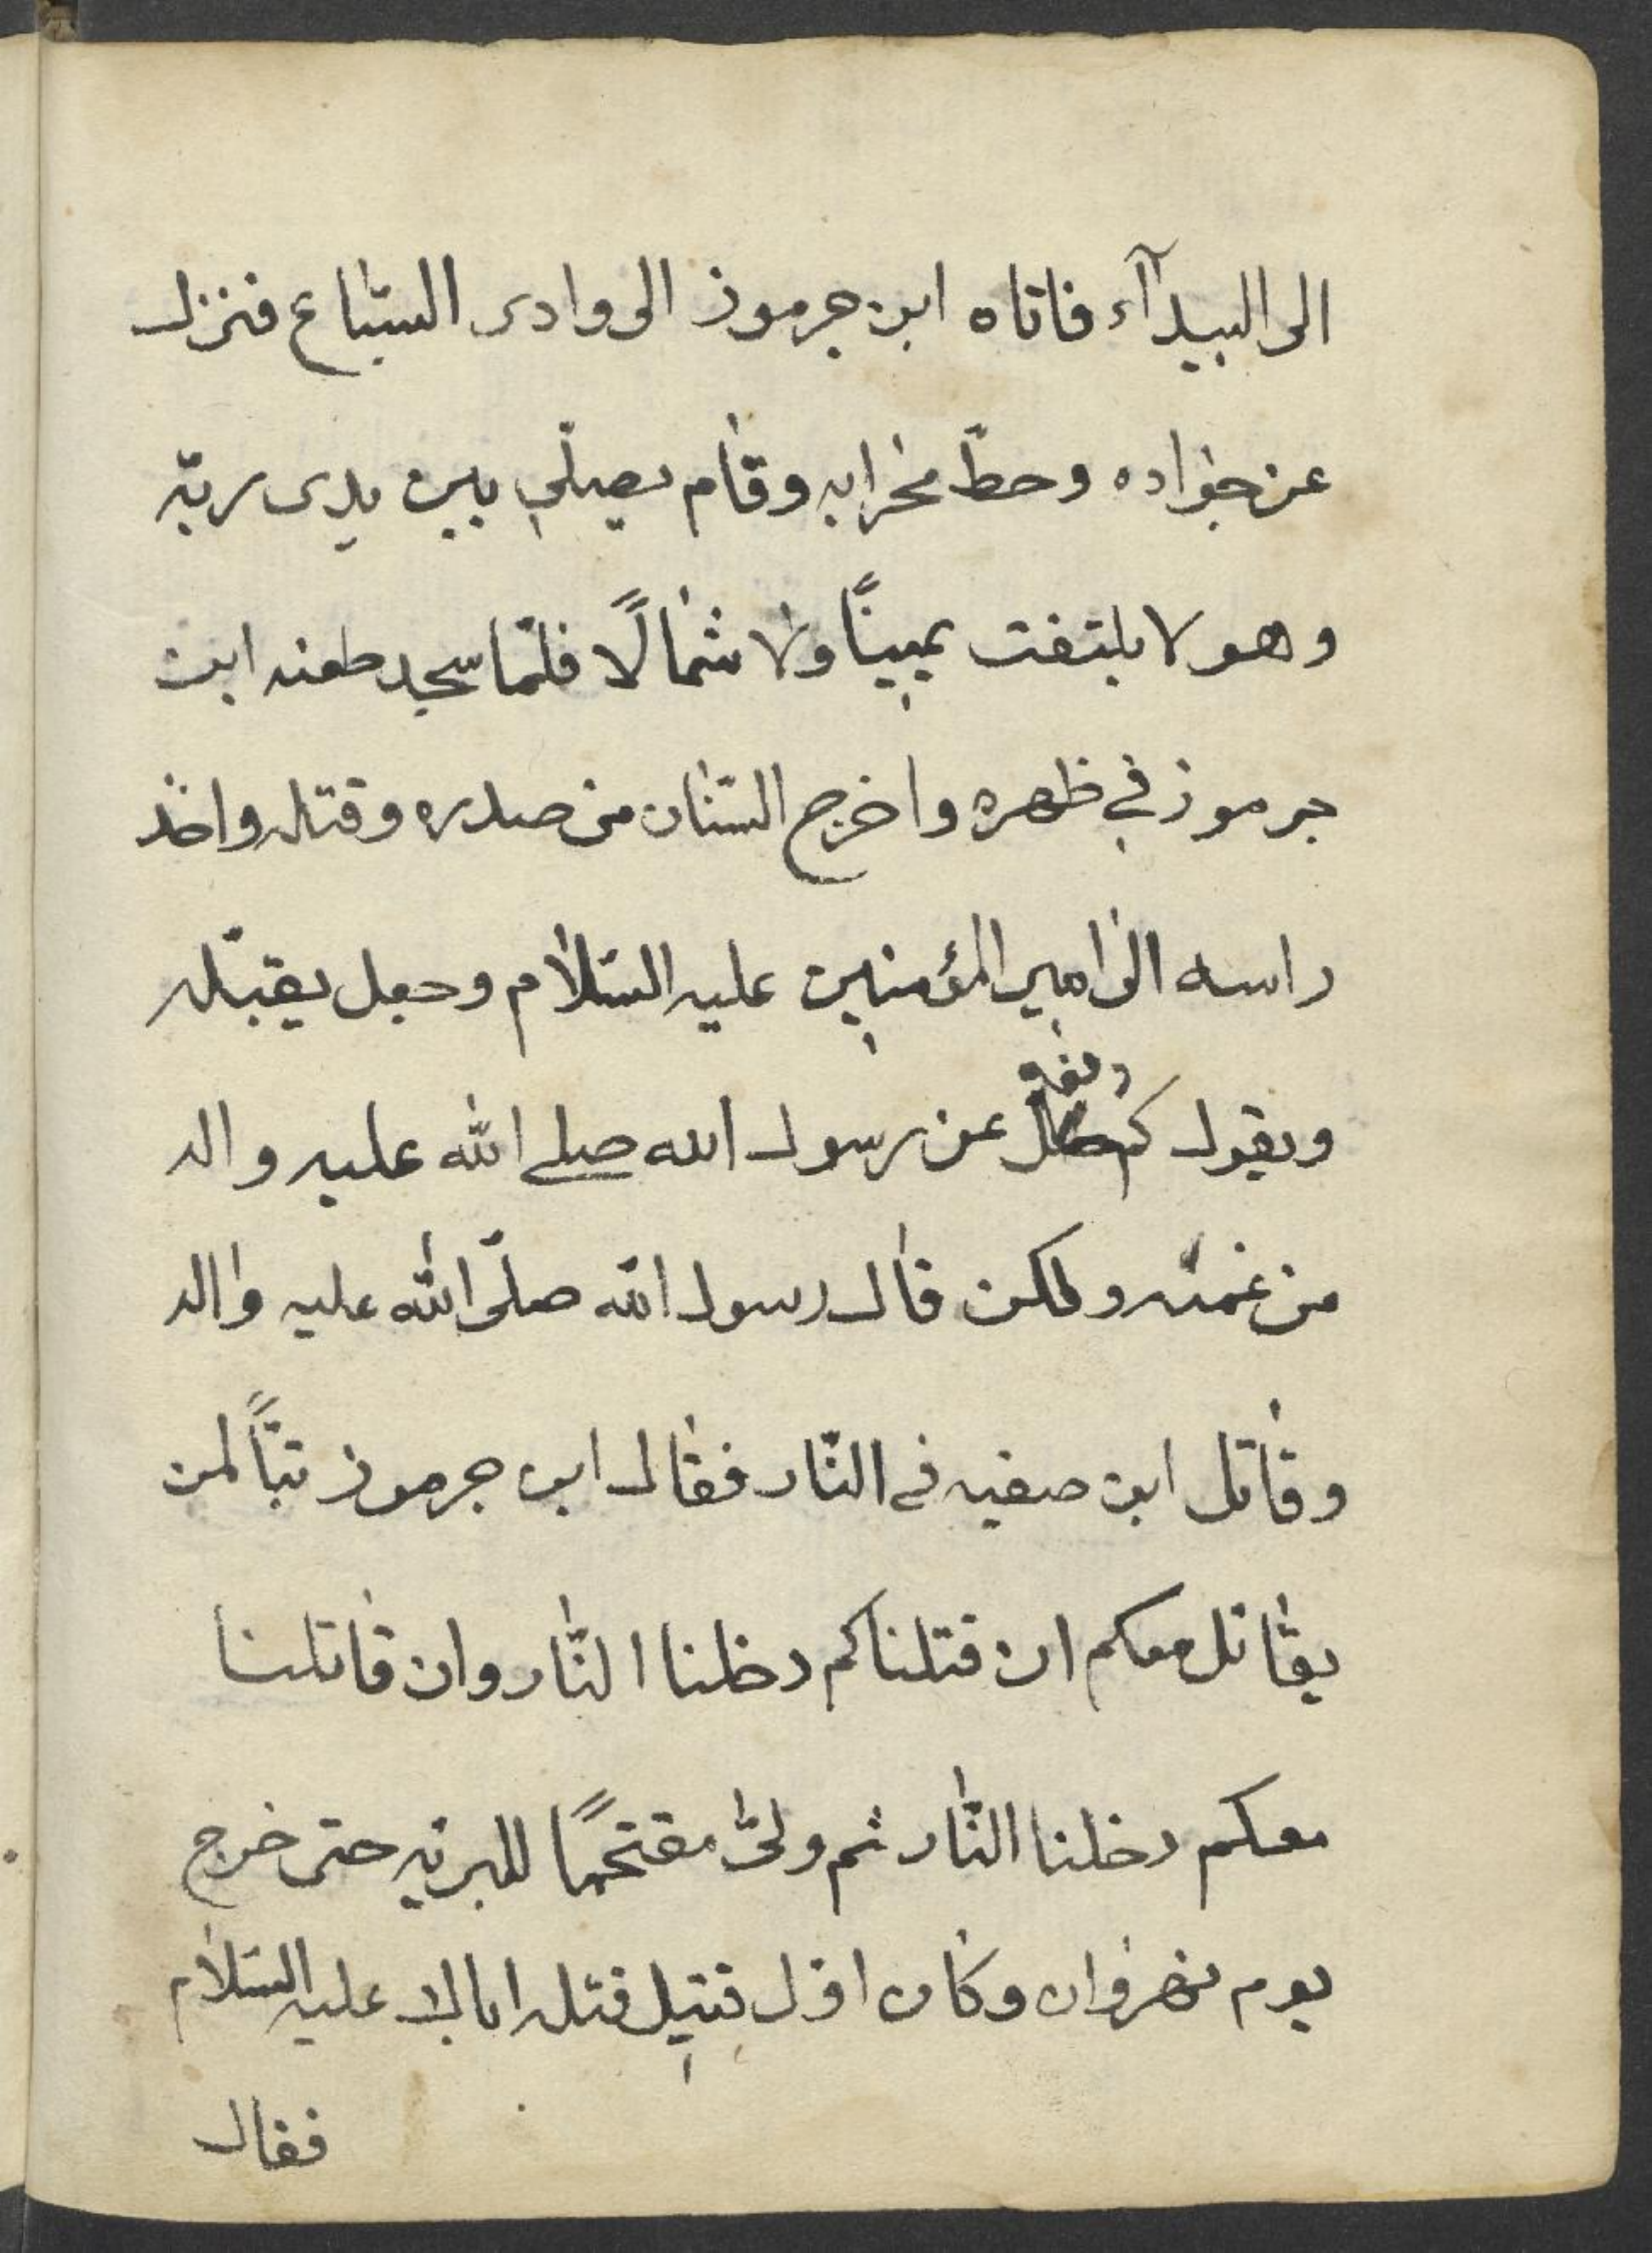 الى البيدآء فاتاه ابن جرموز الى وادى السّباع فنزل
عن جواده وحطّ محرابه وقام يصلّي بين يدى ربّه
وهو لا يلتفت يمينًا ولا شمالًا فلمّا سجد طعنه ابن
جرموز في ظهره واخرج السّنان من صدره وقتله واخذ
راسه الى امير المؤمنين عليه السّلام وجعل يقبّله
ويقول كم دفع عن رسول الله صلى الله عليه واله
من غمّه ولكن قال رسول الله صلّى الله عليه واله
وقاتل ابن صفيه في النّار فقال ابن جرموز تبّاً لمن
يقاتل معكم ان قتلناكم دخلنا النّار وان قاتلنا
معكم دخلنا النّار ثم ولىّ مقتحمًا للبريّه حتى خرج
يوم نهروان وكان اوّل قتيل قتله عليه السّلام
فقال